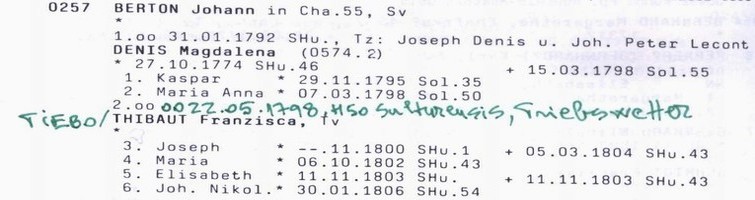 0257 BERTON Johann in Cha.55, Sv
*
1.oo 31.01.1792 SHu., Tz: Joseph Denis u. Joh. Peter Lecont
DENIS Magdalena (0574.2)
* 27.10.1774 SHu.46 + 15.03.1798 Sol.55
1. Kaspar * 29.11.1795 Sol.35
2. Maria Anna * 07.03.1798 Sol.50
2.oo 0022.05.1798, Hso Sulturensis, Triebswetter
TiEBO/THIBAUT Franzisca, Tv
*
3. Joseph * --.11.1800 SHu.1 + 05.03.1804 SHu.43
4. Maria * 06.10.1802 SHu.43
5. Elisabeth * 11.11.1803 SHu. + 11.11.1803 SHu.43
6. Joh. Nikol.* 30.01.1806 SHu.54